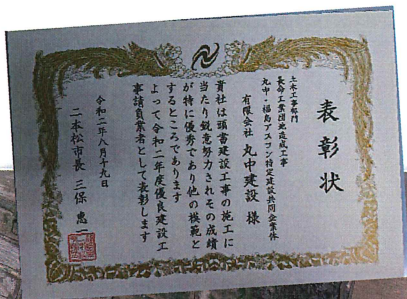 表彰状
土木工事部門
長命工業団地造成工事
丸中・福島アスコン特定建設共同企業体
有限会社 丸中建設 様
貴社は頭書建設工事の施工に
当たり鋭意努力されその成績
が特に優秀であり他の模範と
するところであります
よって令和二年度優良建設工
事請負業者として表彰します
令和二年八月十九日
二本松市長 三保 恵一